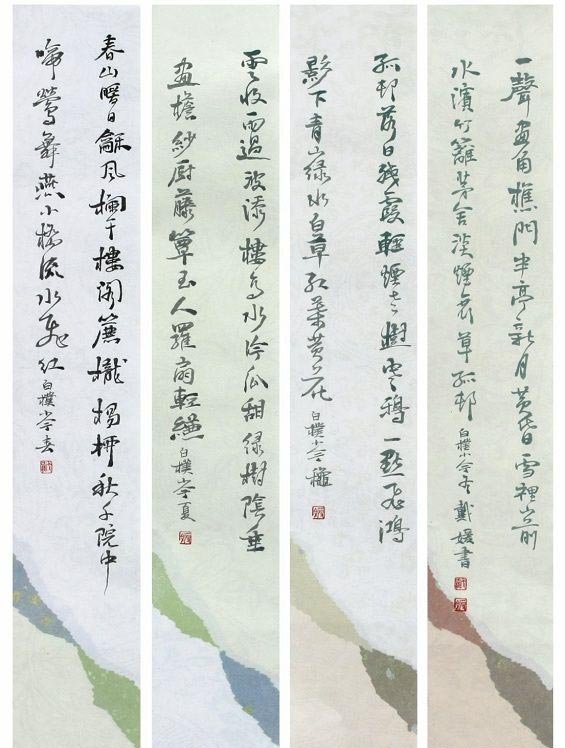 春山暖日龢風欄干樓閣簾櫳楊柳秋千院中
啼鶯舞燕小橋流水飛紅白樸小令春
雲收雨過波添樓高水冷瓜甜綠樹陰垂
畫檐紗廚藤簟玉人羅扇輕縑白樸小令夏
孤邨落日殘霞輕煙老樹寒鴉一點飛鴻
影下青山綠水白草紅葉黃花白樸小令龝
一聲畫角樵門半亭新月黃昏雪裡山前
水濱竹籬茅舍淡煙衰草孤邨白樸小令冬戴媛書